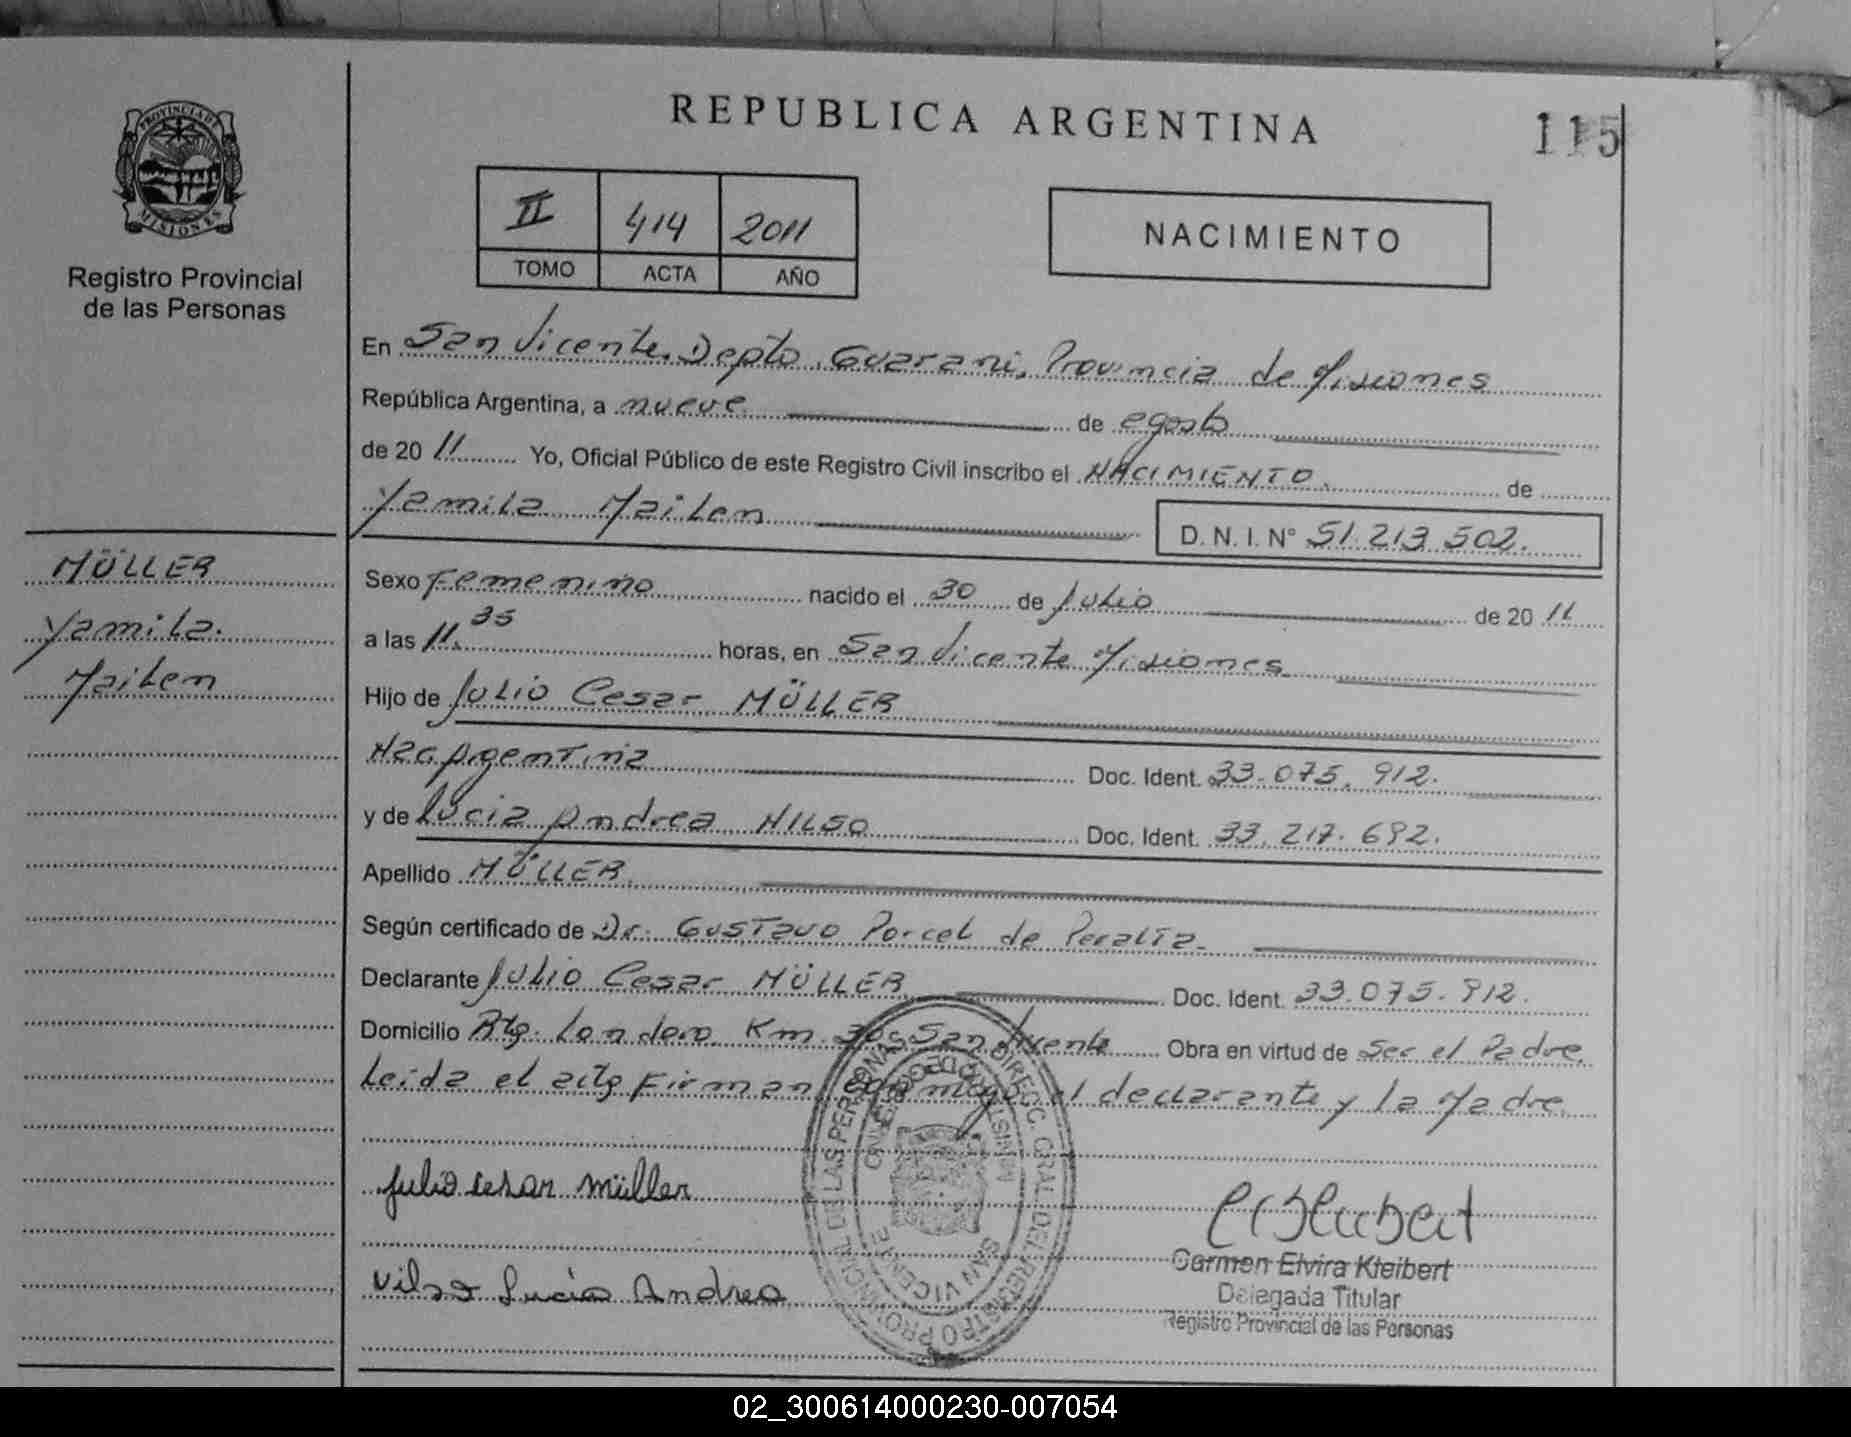 REPUBLICA ARGENTINA
115
PROVINCIA DE
MISIONES
Registro Provincial
de las Personas
II 414 2011
TOMO ACTA AÑO
NACIMIENTO
En San Vicente, Depto Guarani, Provincia de Misiones
República Argentina, a nueve de agosto
de 20 11 Yo, Oficial Público de este Registro Civil inscribo el NACIMIENTO de
Yamila Mailen D. N. I. Nº 51.213.502.
MÜLLER
Yamila
Mailen
Sexo Femenino nacido el 30 de Julio de 20 11
a las 11.35 horas, en San Vicente Misiones
Hijo de Julio Cesar MÜLLER
Nac. Argentina Doc. Ident. 33.075.912.
y de Lucia Andrea NILSO Doc. Ident. 33.217.692.
Apellido MÜLLER
Según certificado de Dr. Gustavo Porcel de Peralta
Declarante Julio Cesar MÜLLER Doc. Ident. 33.075.912.
Domicilio Km San Vicente Obra en virtud de Ser el Padre
Leida el acta Firman conmigo el declarante y la Madre
Julio cesar müller
Lucia Andrea
DIRECC. GRAL. DEL REGISTRO PROVINCIAL DE LAS PERSONAS
MINISTERIO DE GOBIERNO
SAN VICENTE
Carmen Elvira Kleibert
Delegada Titular
Registro Provincial de las Personas
02_300614000230-007054